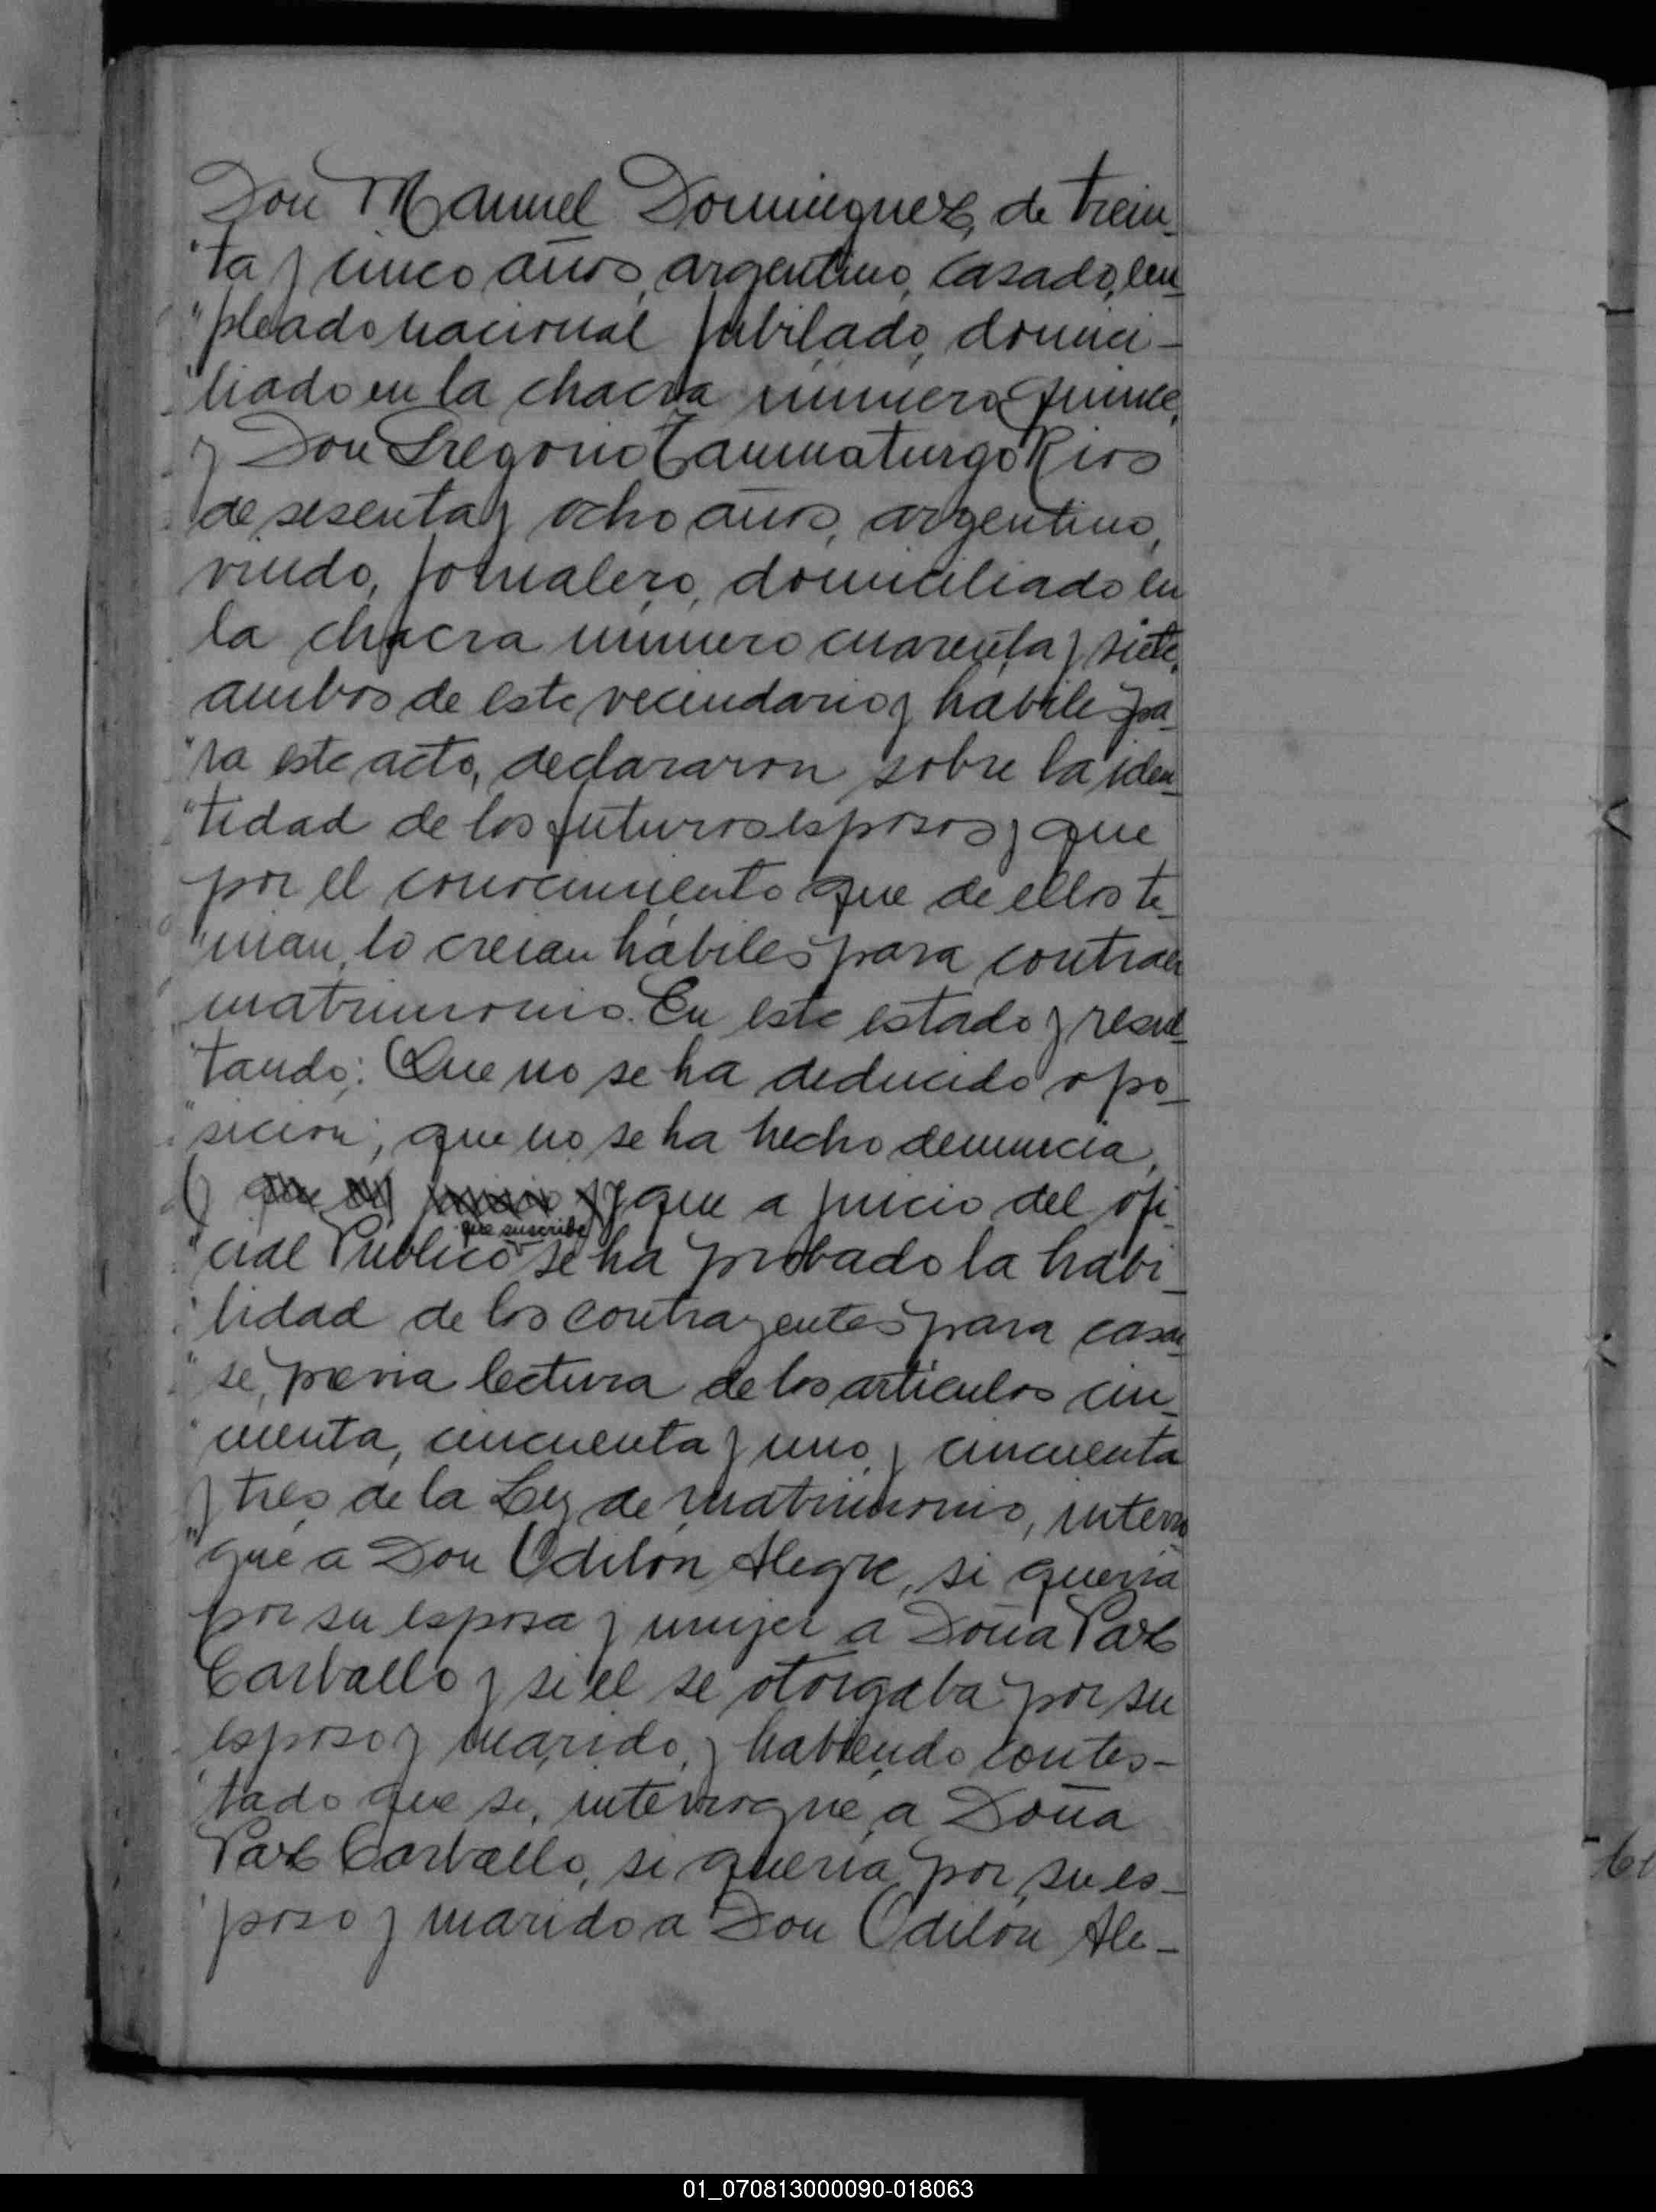 Don Manuel Dominguez, de trein_
"ta y cinco años, argentino, casado, em_
"pleado nacional jubilado, domici-
"liado en la chacra número quince,
y Don Gregorio Taumaturgo Rios
de sesenta y ocho años, argentino,
viudo, jornalero, domiciliado en
la chacra número cuarenta y siete,
ambos de este vecindario y hábiles pa_
"ra este acto, declararon sobre la iden_
"tidad de los futuros esposos y que
por el conocimiento que de ellos te_
"nian, lo creian hábiles para contraer
matrimonio. En este estado y resul_
"tando: Que no se ha deducido opo_
"sicion; que no se ha hecho denuncia,
y que a juicio del ofi_
que suscribe
"cial Público se ha probado la habi_
"lidad de los contrayentes para casar_
"se, previa lectura de los articulos cin_
"cuenta, cincuenta y uno y cincuenta
y tres de la Ley de matrimonio, interro
"gué a Don Odilón Alegre, si queria
por su esposa y mujer a Doña Paz
Carballo y si el se otorgaba por su
esposo y marido, y habiendo contes-
"tado que si, interrogue a Doña
Paz Carballo, si queria por su es_
"poso y marido a Don Odilon Ale-
01_070813000090-018063